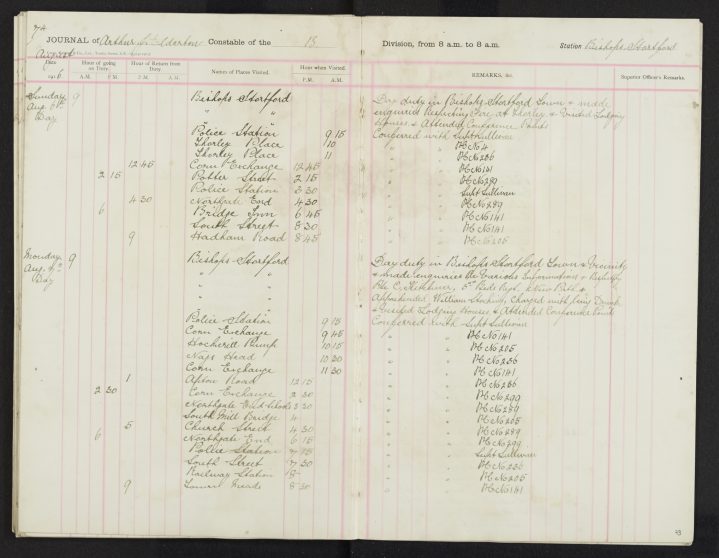 74
JOURNAL of Arthur S. Elderton Constable of the B Division, from 8 a.m. to 8 a.m. Station Bishops Stortford
August
Date Hour of going on Duty. Hour of Return from Duty. Names of Places Visited. Hour when Visited. REMARKS, &c. Superior Officer's Remarks.
1916 A.M. P.M. P.M. A.M. P.M. A.M.
Sunday 9 Bishops Stortford Day duty in Bishops Stortford Town & made
Aug 6th " " enquiries Respecting Fire at Thorley & Visited Lodging
Day " Houses & Attended Conference Points
Police Station 9 15 Conferred with Supt Sullivan
Thorley Place 10 " " PC No 4
Thorley Place 11 " " PC No 236
12 45 Corn Exchange 12 45 " " PC No 141
2 15 Potter Street 2 15 " " PC No 289
Police Station 3 30 " " Supt Sullivan
4 30 Northgate End 4 30 " " PC No 289
6 Bridge Inn 6 45 " " PC No 141
South Street 8 30 " " PC No 141
9 Hadham Road 8 45 " " PC No 205
Monday 9 Bishops Stortford Day duty in Bishops Stortford Town & Vicinity
Aug. 7th " " & made enquiries Re Various Informations &
Day " " Pte C. 5th Beds Regt,
" " Apprehended William Charged with being Drunk
Police Station 9 15 & Visited Lodging Houses & Attended Conference Points
Corn Exchange 9 45 Conferred with Supt Sullivan
Hockerill Pump 10 15 " " PC No 141
Nags Head 10 30 " " PC No 205
Corn Exchange 11 30 " " PC No 236
1 Apton Road 12 15 " " PC No 141
2 30 Corn Exchange 2 30 " " PC No 236
Northgate End Schools 3 30 " " PC No 299
South Mill Bridge 4 " " PC No 289
5 Church Street 4 30 " " PC No 205
6 Northgate End 6 15 " " PC No 289
Police Station 7 15 " " PC No 299
South Street 7 30 " " Supt Sullivan
Railway Station 8 " " PC No 236
9 Meads 8 30 " " PC No 205
" " PC No 141